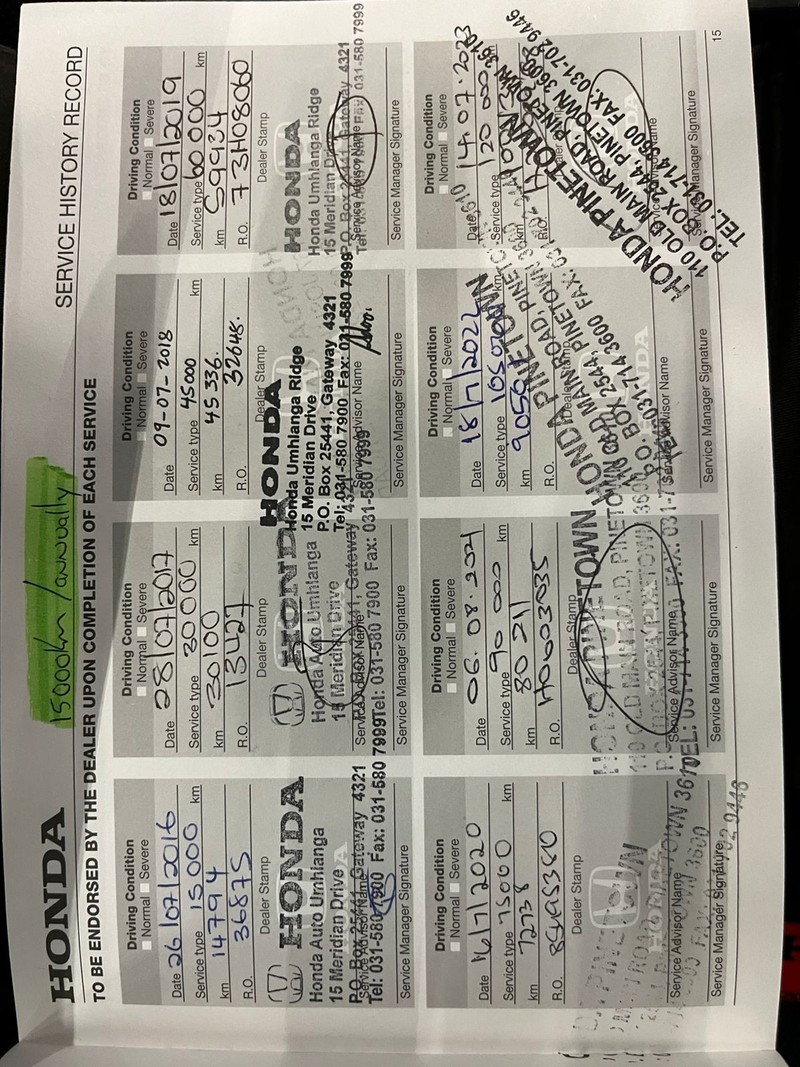 HONDA
SERVICE HISTORY RECORD
15000km /annually
TO BE ENDORSED BY THE DEALER UPON COMPLETION OF EACH SERVICE
Driving Condition
Normal Severe
Date 26/07/2016
Service type 15000 km
km 14794
R.O. 36875
Dealer Stamp
HONDA
Honda Auto Umhlanga
15 Meridian Drive
P.O. Box 25441, Gateway 4321
Service Advisor Name
Tel: 031-580 7900 Fax: 031-580 7999
Service Manager Signature
Driving Condition
Normal Severe
Date 28/07/2017
Service type 30000 km
km 30100
R.O. 13427
Dealer Stamp
HONDA
Honda Auto Umhlanga
15 Meridian Drive
P.O. Box 25441, Gateway 4321
Service Advisor Name
Tel: 031-580 7900 Fax: 031-580 7999
Service Manager Signature
Driving Condition
Normal Severe
Date 09-07-2018
Service type 45000 km
km 45336.
R.O. 32648.
Dealer Stamp
HONDA
Honda Umhlanga Ridge
15 Meridian Drive
P.O. Box 25441, Gateway 4321
Tel: 031-580 7900 Fax: 031-580 7999
Service Advisor Name
Service Manager Signature
Driving Condition
Normal Severe
Date 18/07/2019
Service type 60 000 km
km 59934
R.O. 73H08060
Dealer Stamp
HONDA
Honda Umhlanga Ridge
15 Meridian Drive
P.O. Box 25441, Gateway 4321
Service Advisor Name
Tel: 031-580 7900 Fax: 031-580 7999
Service Manager Signature
Driving Condition
Normal Severe
Date 16/7/2020
Service type 75000 km
km 72738
R.O.
Dealer Stamp
PINETOWN
Service Advisor Name
Service Manager Signature
Driving Condition
Normal Severe
Date 06.08.2021
Service type 90 000 km
km 80211
R.O. H0603035
Dealer Stamp
HONDA PINETOWN
110 OLD MAIN ROAD, PINETOWN 3600
Service Advisor Name
Service Manager Signature
Driving Condition
Normal Severe
Date 18/7/2022
Service type 105000 km
km
R.O.
HONDA PINETOWN
110 OLD MAIN ROAD, PINETOWN
P.O. BOX 2544, PINETOWN 3600
Service Advisor Name
Service Manager Signature
Driving Condition
Normal Severe
Date 14.07.2023
Service type 120 000
km
R.O.
HONDA PINETOWN
110 OLD MAIN ROAD, PINETOWN 3610
P.O. BOX 2544, PINETOWN 3600
TEL: 031-714 3600 FAX: 031-702 9446
Service Manager Signature
15